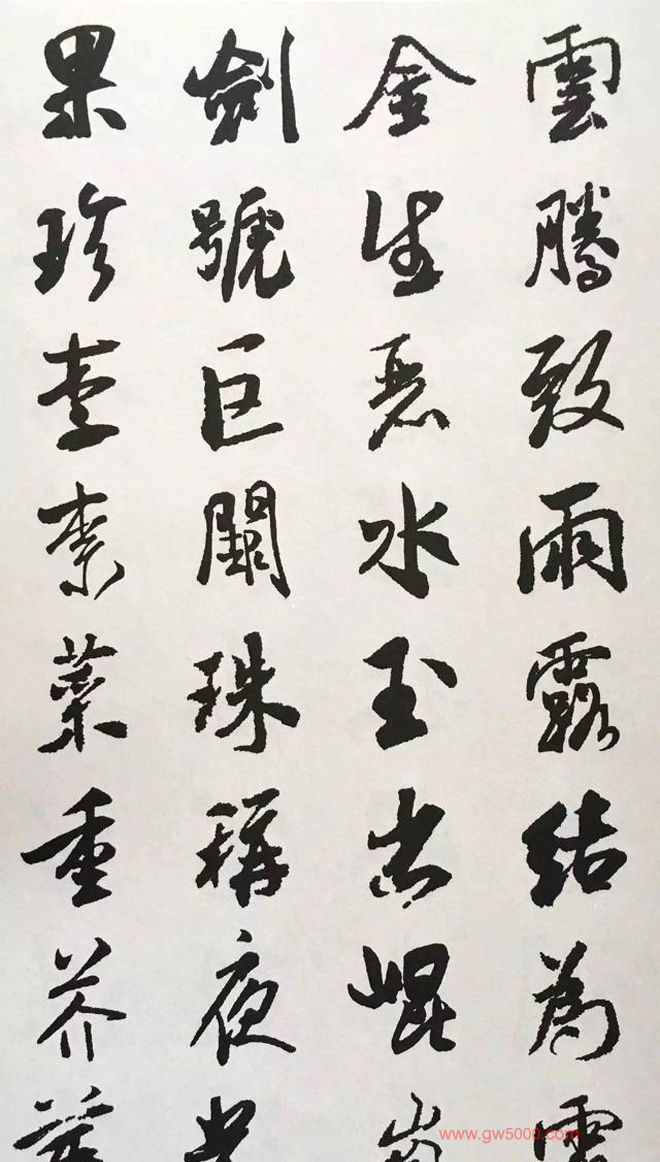 雲騰致雨露結為
金生麗水玉出崐
劍號巨闕珠稱夜
果珍李柰菜重芥
www.gw5000.com